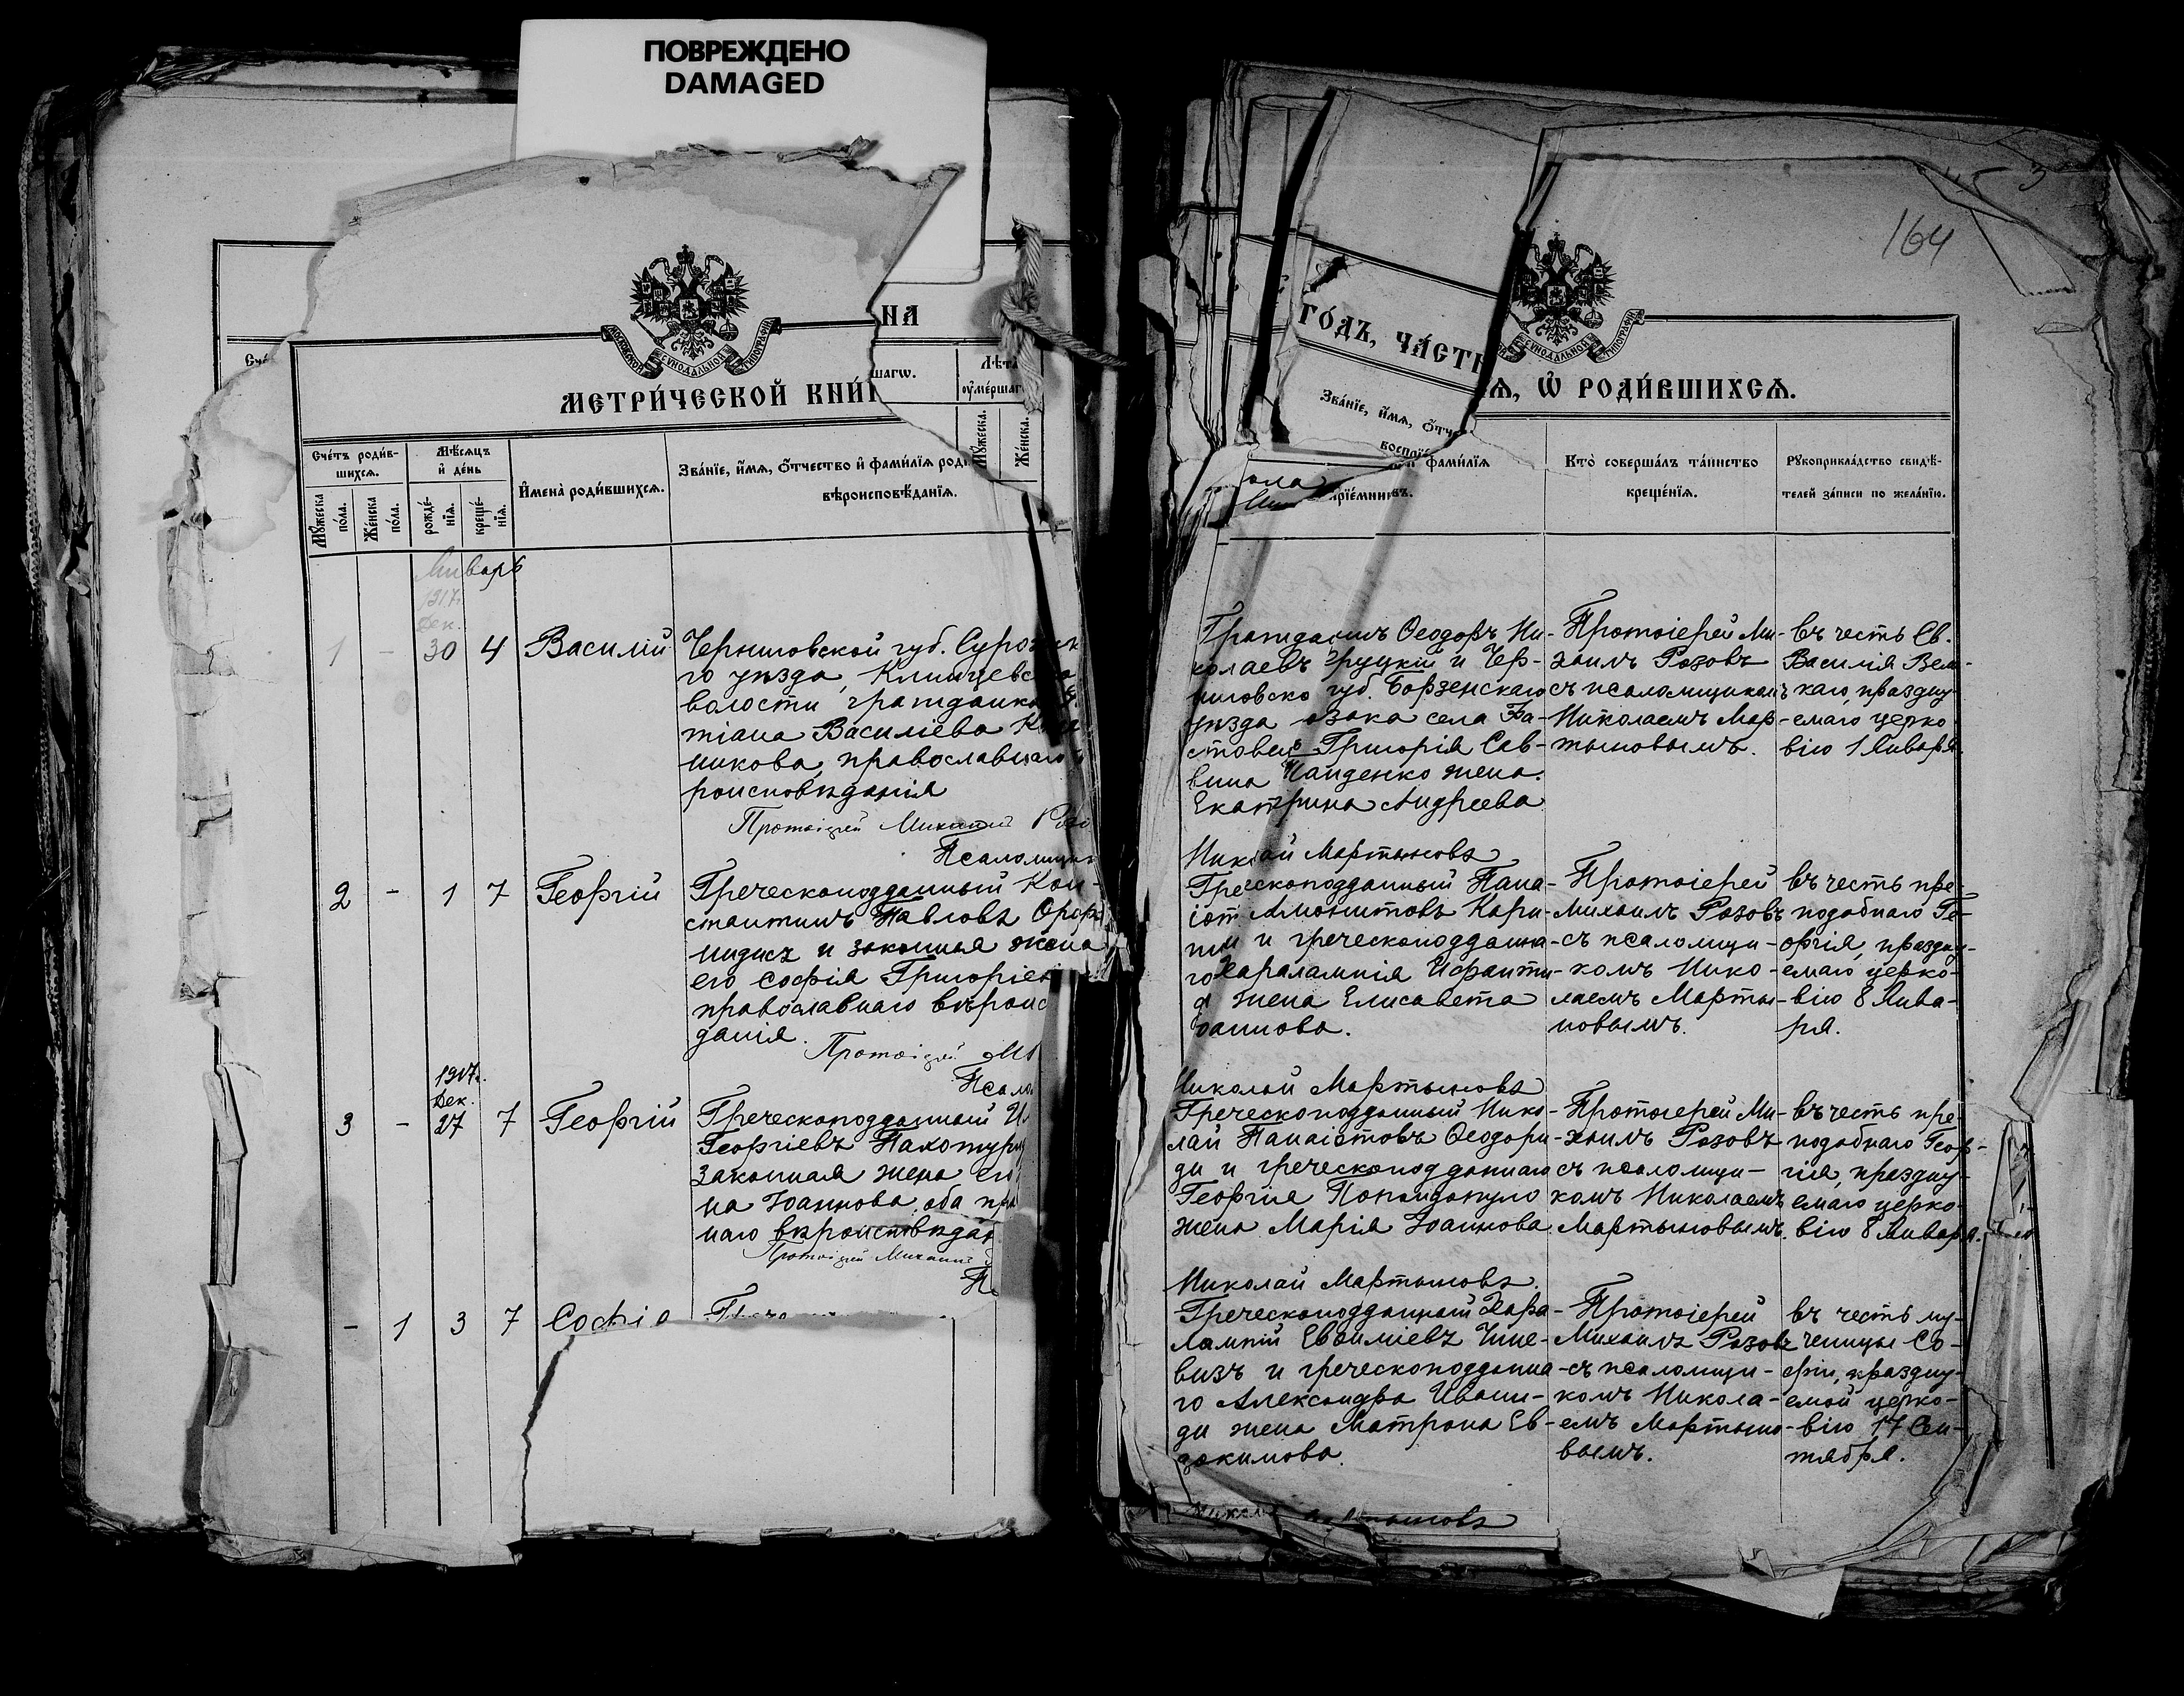 ПОВРЕЖДЕНО
DAMAGED
НА
шагѡ.
Лѣта
ᲂумершаг
Мꙋжеска.
Женска.
МЕТРИ́ЧЕСКОЙ КНИ́
Сче́тъ роди́в-
шихсѧ.
Мꙋжеска
по́ла.
Же́нска
по́ла.
Мѣ́сѧцъ
и҆ де́нь
рожде́-
нїѧ.
креще́-
нїѧ.
И҆мена̀ роди́вшихсѧ.
Зва́нїе, и҆́мѧ, ѻ҆́тчество и҆ фами́лїѧ роди
вѣроисповѣ́данїѧ.
Январь
1917г.
Дек.
1 - 30 4 Василій
Черниговской губ.
го уѣзда, Клинцевс
волости гражданка
тіана Васильева
никова, православнаго
роисповѣданія
Протоіерей Михаилъ
Псаломщик
2 - 1 7 Георгій
Греческоподданный Кон-
стантинъ Павловъ
и законная жена
его Софія Григоріев
православнаго вѣроис
данія.
Протоіерей Ми
Псало
1917г.
Дек.
3 - 27 7 Георгій
Греческоподданный
Георгіевъ
законная жена его
на Іоаннова, оба пра
наго вѣроисповѣдан
Протоіерей Михаилъ
- 1 3 7 Софія
164
ГО́ДЪ, ЧА́СТЬ
Ѧ, Ѡ҆ РОДИ́ВШИХСѦ.
Зва́нїе, и҆́мѧ, ѻ҆́тче
воспрїе
и҆ фами́лїѧ
прїе́мникѡвъ.
Кто̀ соверша́лъ та́инство
креще́нїѧ.
Рꙋкоприкла́дство свидѣ́-
телей за́писи по жела́нїю.
Гражданинъ Ѳеодоръ Ни-
колаевъ Груцкій и Чер-
ниговско губ. Борзенскаго
уѣзда озака села Ха-
Григорія Сав-
вина жена
Екатерина Андреева
Протоіерей Ми-
хаилъ Розовъ
съ псаломщикомъ
Николаемъ Мар-
тыновымъ.
въ честь Св.
Василія Вели-
каго, праздну-
емаго церко
вію 1 Января.
Николай Мартыновъ
Греческоподданный Пана-
іотъ Кари-
и греческоподданна-
го Харалампія
жена Елисавета
Протоіерей
Михаилъ Розовъ
съ псаломщи-
комъ Нико-
лаемъ Марты-
новымъ.
въ честь пре-
подобнаго Ге-
оргія, праздну-
емаго церко-
вію 8 Янва-
ря.
Николай Мартыновъ
Греческоподданный Нико-
лай Панаіотовъ Ѳеодори-
ди и греческоподданнаго
Георгія Попандопуло
жена Марія Іоаннова.
Протоіерей Ми-
хаилъ Розовъ
съ псаломщи-
комъ Николаемъ
Мартыновымъ.
въ честь пре-
подобнаго Геор-
гія, праздну-
емаго церко-
вію 8 Января.
Николай Мартыновъ.
Греческоподданный Хара-
лампій Евѳиміевъ
и греческоподданна-
го Александра Ивани-
ди жена Матрона Ев-
докимова.
Протоіерей
Михаилъ Розовъ
съ псаломщи-
комъ Никола-
емъ Мартыно-
вымъ.
въ честь му-
ченицы Со-
фіи, праздну-
емой церко-
вію 17 Сен-
тября.